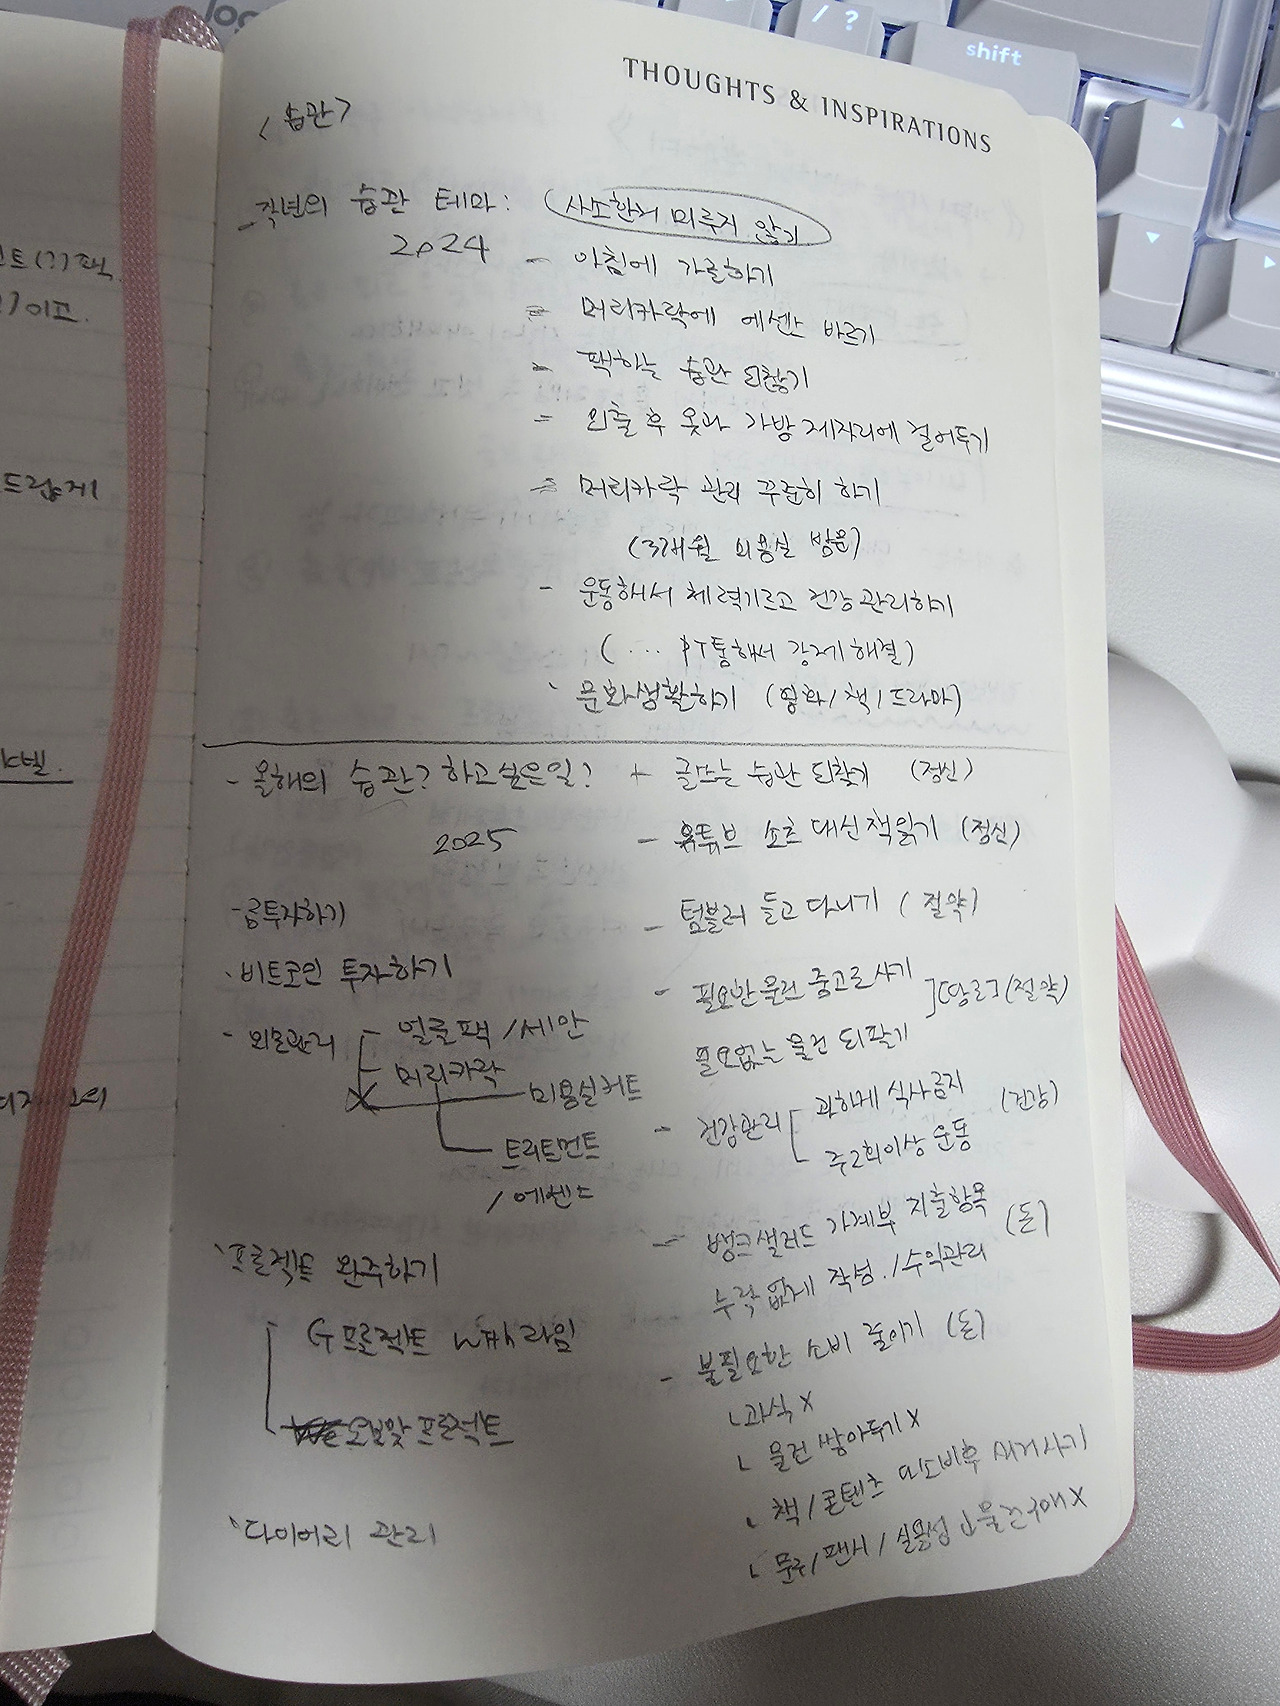 THOUGHTS & INSPIRATIONS
<습관>
작년의 습관 테마: (사소한거 미루지 않기
2024
- 아침에 가글하기
- 머리카락에 에센스 바르기
- 팩하는 습관 되찾기
- 외출 후 옷과 가방 제자리에 걸어두기
- 머리카락 관리 꾸준히 하기
(3개월 미용실 방문)
- 운동해서 체력기르고 건강관리하기
(... PT통해서 강제해결)
- 문화생활하기 (영화/책/드라마)
- 올해의 습관? 하고싶은일?
2025
- 공투자하기
- 비트코인 투자하기
- 외모관리
얼굴팩/세안
머리카락
미용실커트
트리트먼트
/에센스
- 프로젝트 완주하기
G프로젝트 with 라임
오보맞프로젝트
- 다이어리 관리
+ 글쓰는 습관 되찾기 (정신)
- 유튜브 쇼츠 대신 책읽기 (정신)
- 텀블러 들고 다니기 (절약)
- 필요한 물건 중고로 사기
필요없는 물건 되팔기
](당근](절약)
- 건강관리 [ 과하게 식사금지 (건강)
주2회이상 운동
- 뱅크샐러드 가계부 지출항목 (돈)
누락 없게 작성./수익관리
- 불필요한 소비 줄이기 (돈)
ㄴ과식 X
ㄴ 물건 쌓아두기 X
ㄴ 책/콘텐츠 다소비후 새거사기
ㄴ 문구/팬시/실용성 물건구매 X
트(?)팩
이고.
드렵게
라벨.